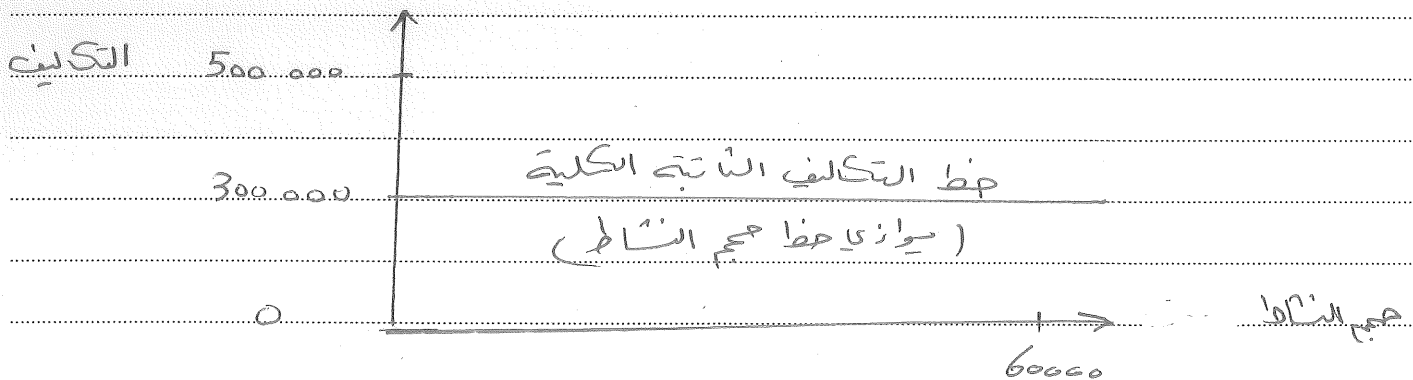 التكاليف 500 000
300 000 خط التكاليف الثابتة الكلية
(يوازي خط حجم النشاط)
0 حجم النشاط
60000